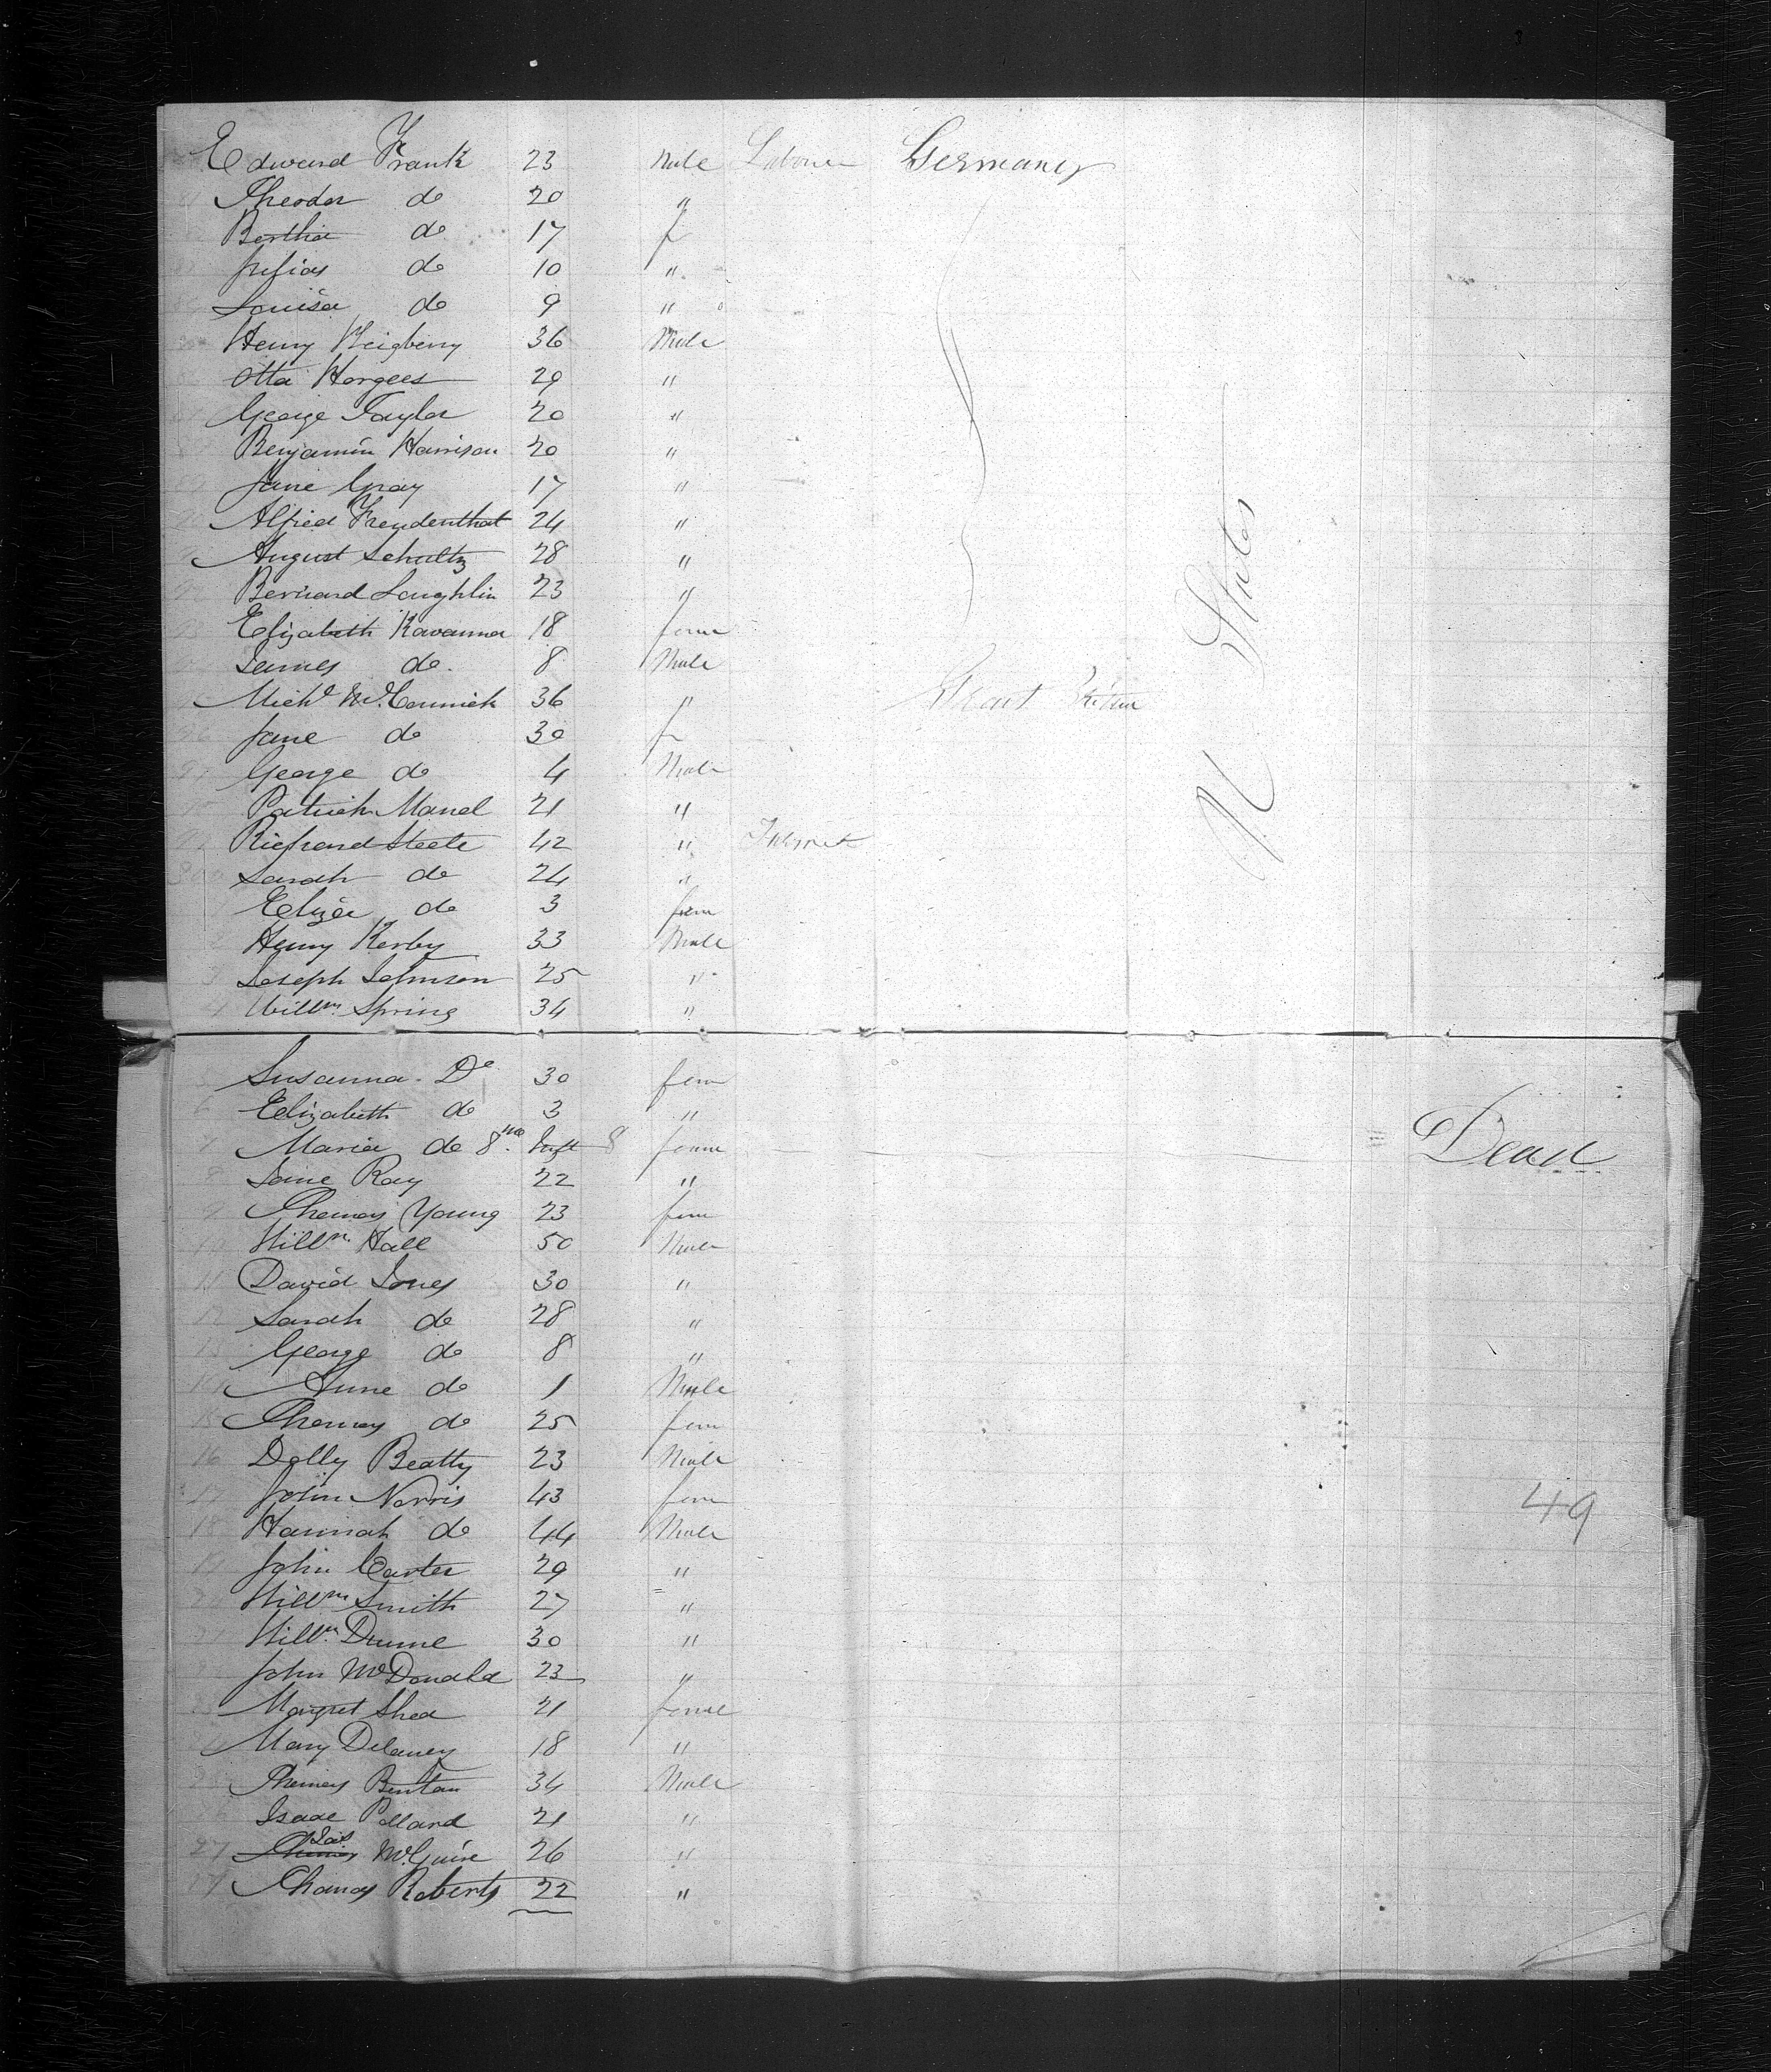 Edward Frank 23 Male Labour Germany
81 Theodor do 20 "
Bertha do 17 f
Julias do 10 "
Louisa do 9 "
Henry Weigberry 36 Male
Otta Horgees 29 "
George Taylor 20 "
Benjamin Harrison 20 "
Jane Gray 17 "
Alfred Freudenthat 24 "
August Schultz 28 "
Bernard Loughlin 23 "
Elizabeth Kavanna 18 feme
James do. 8 Male
Michl McCormick 36 " Great Britain
96 Jane do 30 f
97 George do 4 Male
Patrick Manel 21 "
99 Richard Steele 42 "
300 Sarah do 24 "
1 Eliza do 3 fem
2 Henry Kerby 33 Male
3 Joseph Johnson 25 "
4 Willm Spring 34 "
U States
5 Susanna Do 30 fem
6 Elizabeth do 3 "
7 Maria do 8 mo. Inft 8 feme Dead
8 Jane Ray 22 "
9 Thomas Young 23 fem
10 Willm Hall 50 Male
11 David Jones 30 "
12 Sarah do 28 "
13 George do 8 "
14 Anne do 1 Male
15 Thomas do 25 fem
16 Dolly Beatty 23 Male
17 John Norris 43 fem 49
18 Hannah do 44 Male
19 John Carter 29 "
20 Willm Smith 27 "
21 Willm Dunne 30 "
John McDonald 23 "
23 Margret Shea 21 feme
Mary Delaney 18 "
Thomas Bentan 34 Male
26 Isaac Pollard 21 "
27 Thomas Jas McGuire 26 "
Thomas Roberts 22 "